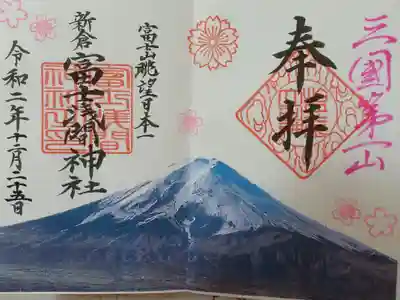 三國第一山
奉拝
富士眺望日本一
新倉富士浅間神社
令和二年十二月二十五日